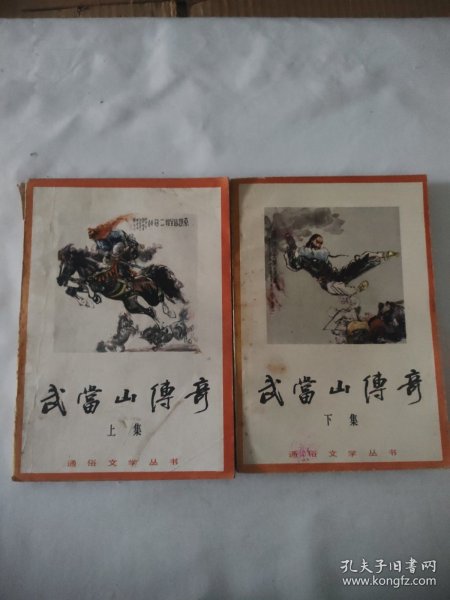 武當山傳奇
上集
通俗文学丛书
武當山傳奇
下集
通俗文学丛书
孔夫子旧书网
www.kongfz.com